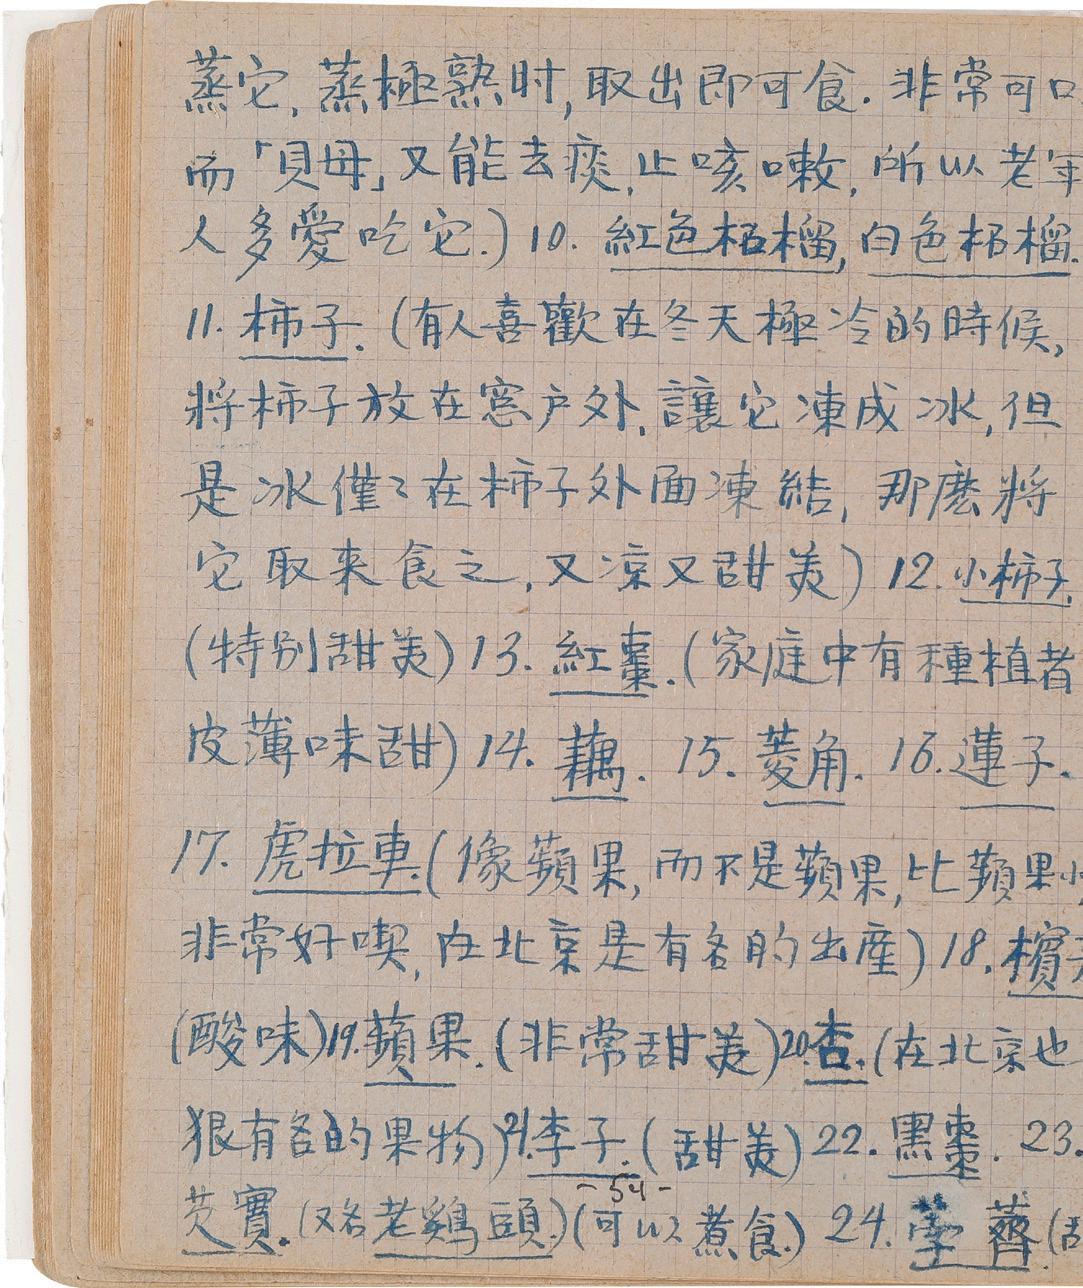 蒸它,蒸極熟时,取出即可食.非常可口
而「貝母」又能去痰,止咳嗽,所以老年
人多愛吃它.)10.紅色柘榴,白色柘榴.
11.柿子.(有人喜歡在冬天極冷的時候,
將柿子放在窓户外,讓它凍成冰,但
是冰僅々在柿子外面凍結,那麽將
它取来食之,又凉又甜美)12.小柿子.
(特别甜美)13.紅棗.(家庭中有種植者
皮薄味甜)14.藕.15.菱角.16.蓮子.
17.虎拉車.(像蘋果,而不是蘋果,比蘋果小
非常好喫,在北京是有名的出産)18.檳
(酸味)19.蘋果.(非常甜美)20.杏.(在北京也
狠有名的果物)21.李子.(甜美)22.黑棗.23.
芡實.(又名老鷄頭.)(可以煮食.)24.荸薺.(甜
-54-